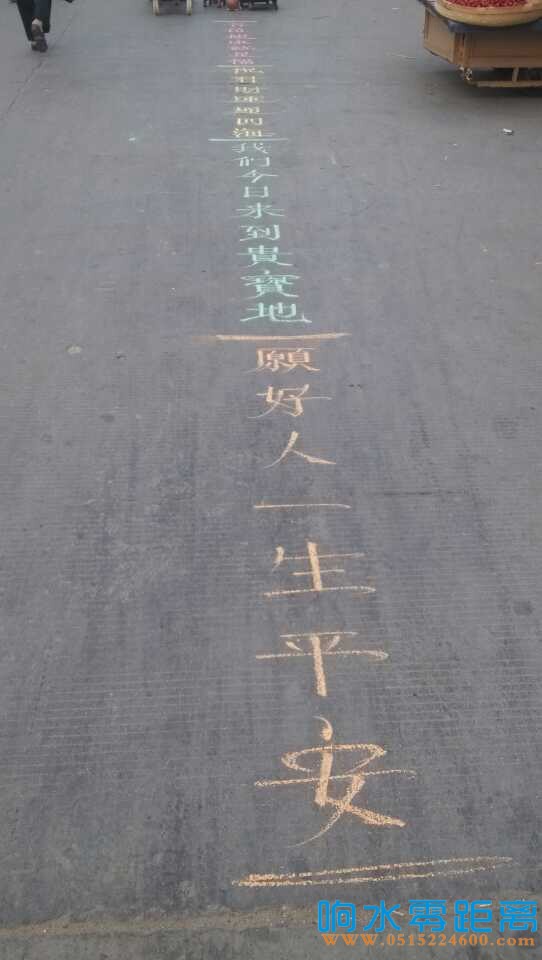 祝君財球通四海
我们今日来到貴寶地
願好人一生平安
响水零距离
www.0515224600.com